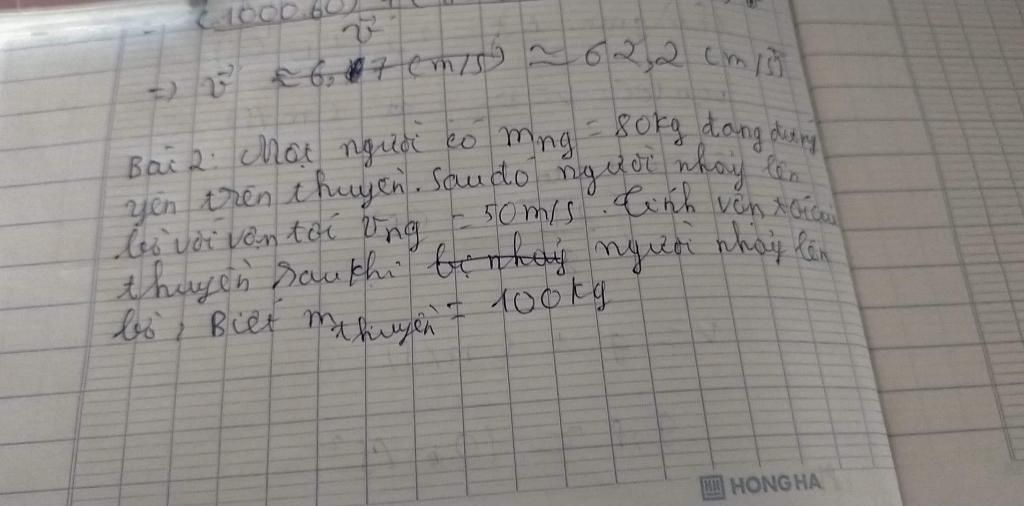 (1000.60)
v⃗
=> v⃗ ≈ 6,17 (m/s) ≈ 62,2 (m/s)
Bài 2: Một người có mng = 80kg đang đứng
yên trên thuyền. Sau đó người nhảy lên
bờ với vận tốc vng = 50m/s. Tính vận tốc của
thuyền sau khi bị nhảy người nhảy lên
bờ, Biết mthuyền = 100kg
HH HONG HA